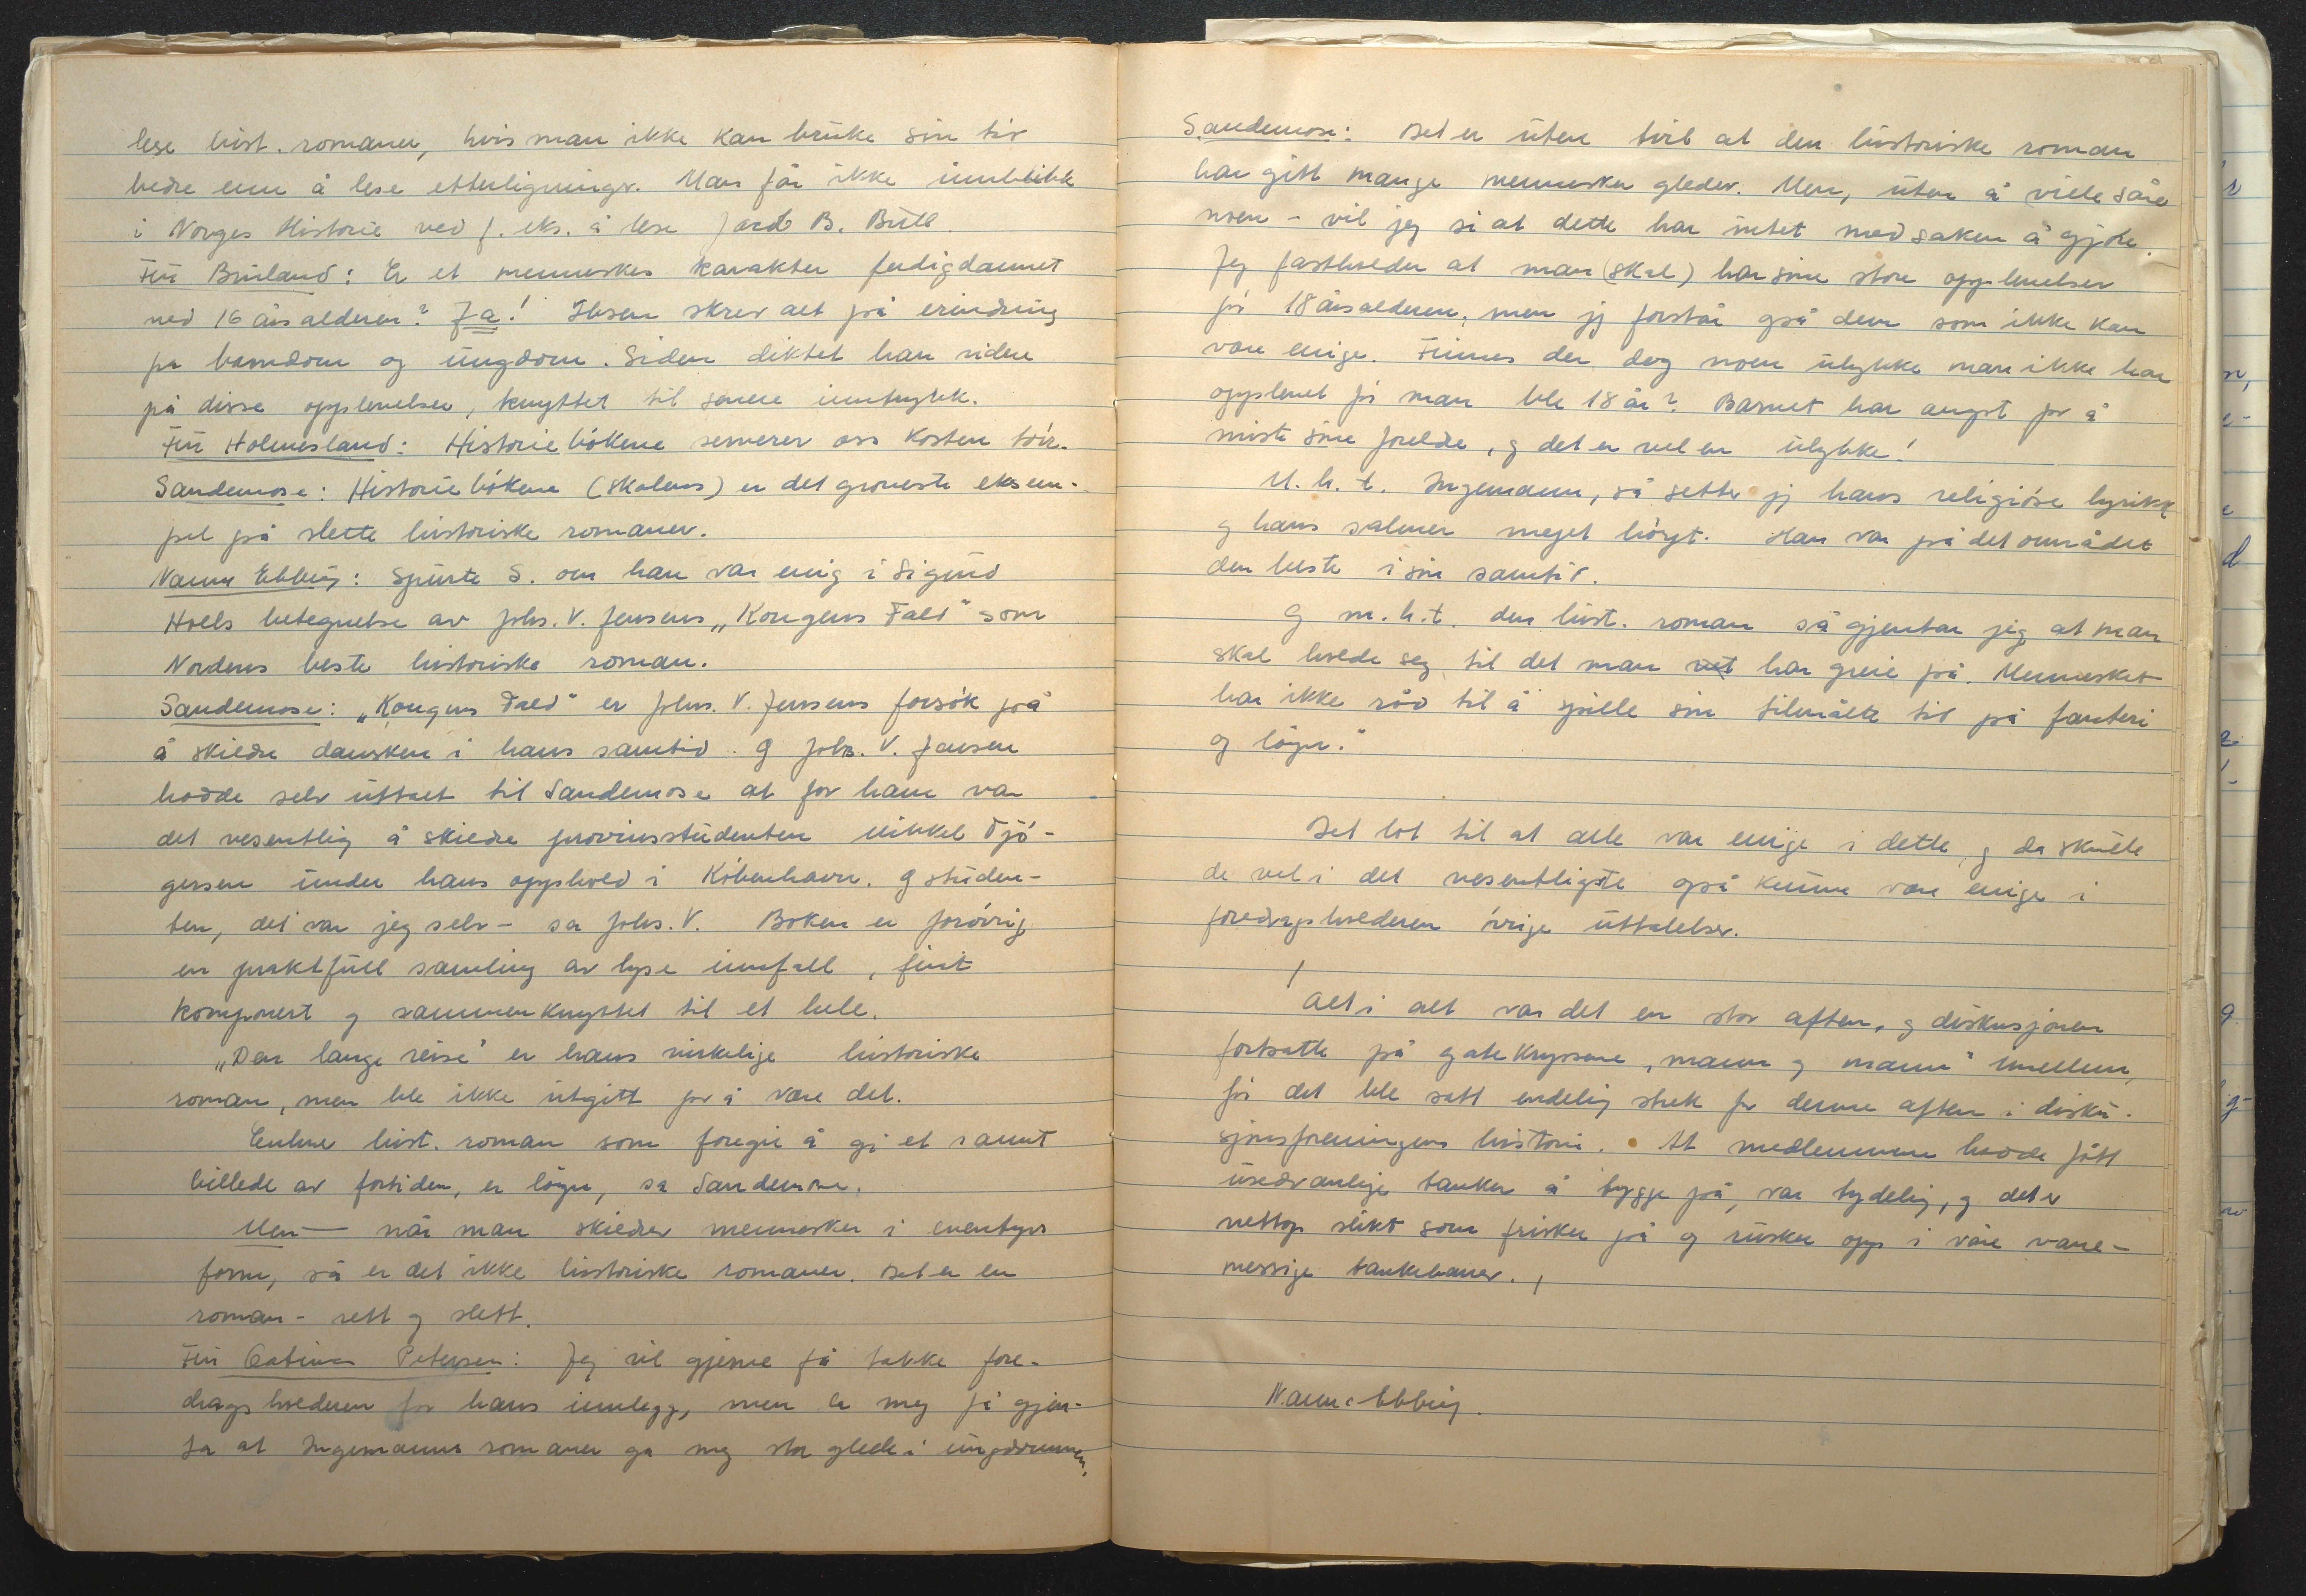 lese hist. romaner, hvis man ikke kan bruke sin tid
bedre enn å lese etterligninger. Man får ikke innblikk
i Norges Historie ved f. eks. å lese Jacob B. Bull.
Frü Bruland: Er et menneskes karakter ferdigdannet
ved 16 års alderen? Ja! Ibsen skrev alt på erindring
fra barndom og ungdom. Siden diktet han videre
på disse opplevelser, knyttet til senere inntrykk.
Frü Holmesland: Historiebökene serverer oss kosten törr.
Sandemose: Historiebökene (skolens) er det groveste eksem-
pel på slette historiske romaner.
Nanna Ebbing: Spurte S. om han var enig i Sigurd
Hoels betegnelse av Johs. V. Jensens „Kongens Fald" som
Nordens beste historiske roman.
Sandemose: „Kongens Fald" er Johs. V. Jensens forsök på
å skildre dansken i hans samtid. Og Johs. V. Jensen
hadde selv uttalt til Sandemose at for ham var
det vesentlig å skildre provinsstudenten Mikkel Tjö-
gersen under hans opphold i Köbenhavn. Og studen-
ten, det var jeg selv - sa Johs. V. Boken er forövrig
en praktfull samling av lyse innfall, fint
komponert og sammenknyttet til et hele.
„Den lange reise" er hans virkelige historiske
roman, men ble ikke utgitt for å være det.
Enhver hist. roman som foregir å gi et sannt
billede av fortiden, er lögn, sa Sandemose.
Men — når man skildrer mennesker i eventyrs
form, så er det ikke historiske romaner. Det er en
roman - rett og slett.
Frü Cathinca Petersen: Jeg vil gjerne få takke fore-
dragsholderen for hans innlegg, men la meg få gjen-
ta at Ingemanns romaner ga meg stor glede i ungdommen.
Sandemose: Det er uten tvil at den historiske roman
har gitt mange mennesker gleder. Men, uten å ville såre
noen - vil jeg si at dette har intet med saken å gjöre.
Jeg fastholder at man (skal) har sine store opplevelser
för 18 årsalderen, men jeg forstår også dem som ikke kan
være enige. Finnes der dog noen ulykke man ikke har
opplevet för man ble 18 år? Barnet har angst for å
miste sine foreldre, og det er vel en ulykke!
M. h. t. Ingemann, så setter jeg hans religiöse lyrikk
og hans salmer meget höyt. Han var på det området
den beste i sin samtid.
Og m. h. t. den hist. roman så gjentar jeg at man
skal holde seg til det man vet har greie på. Mennesket
har ikke råd til å spille sin tilmålte tid på fanteri
og lögn."
Det lot til at alle var enige i dette, og da skulle
de vel i det vesentligste også kunne være enige i
foredragsholderen övrige uttalelser.
Alt i alt var det en stor aften, og diskusjonen
fortsatte på gatekryssene „mann og mann" imellem,
för det ble satt endelig strek for denne aften i disku-
sjonsforeningens historie. At medlemmene hadde fått
usedvanlige tanker å bygge på, var tydelig, og det er
nettop slikt som frisker på og rusker opp i våre vane-
messige tankebaner.
Nanna Ebbing.